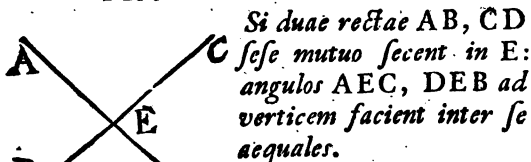 Si duae rectae AB, CD
A
C
sese mutuo secent in E:
angulos AEC, DEB ad
E
verticem facient inter se
aequales.